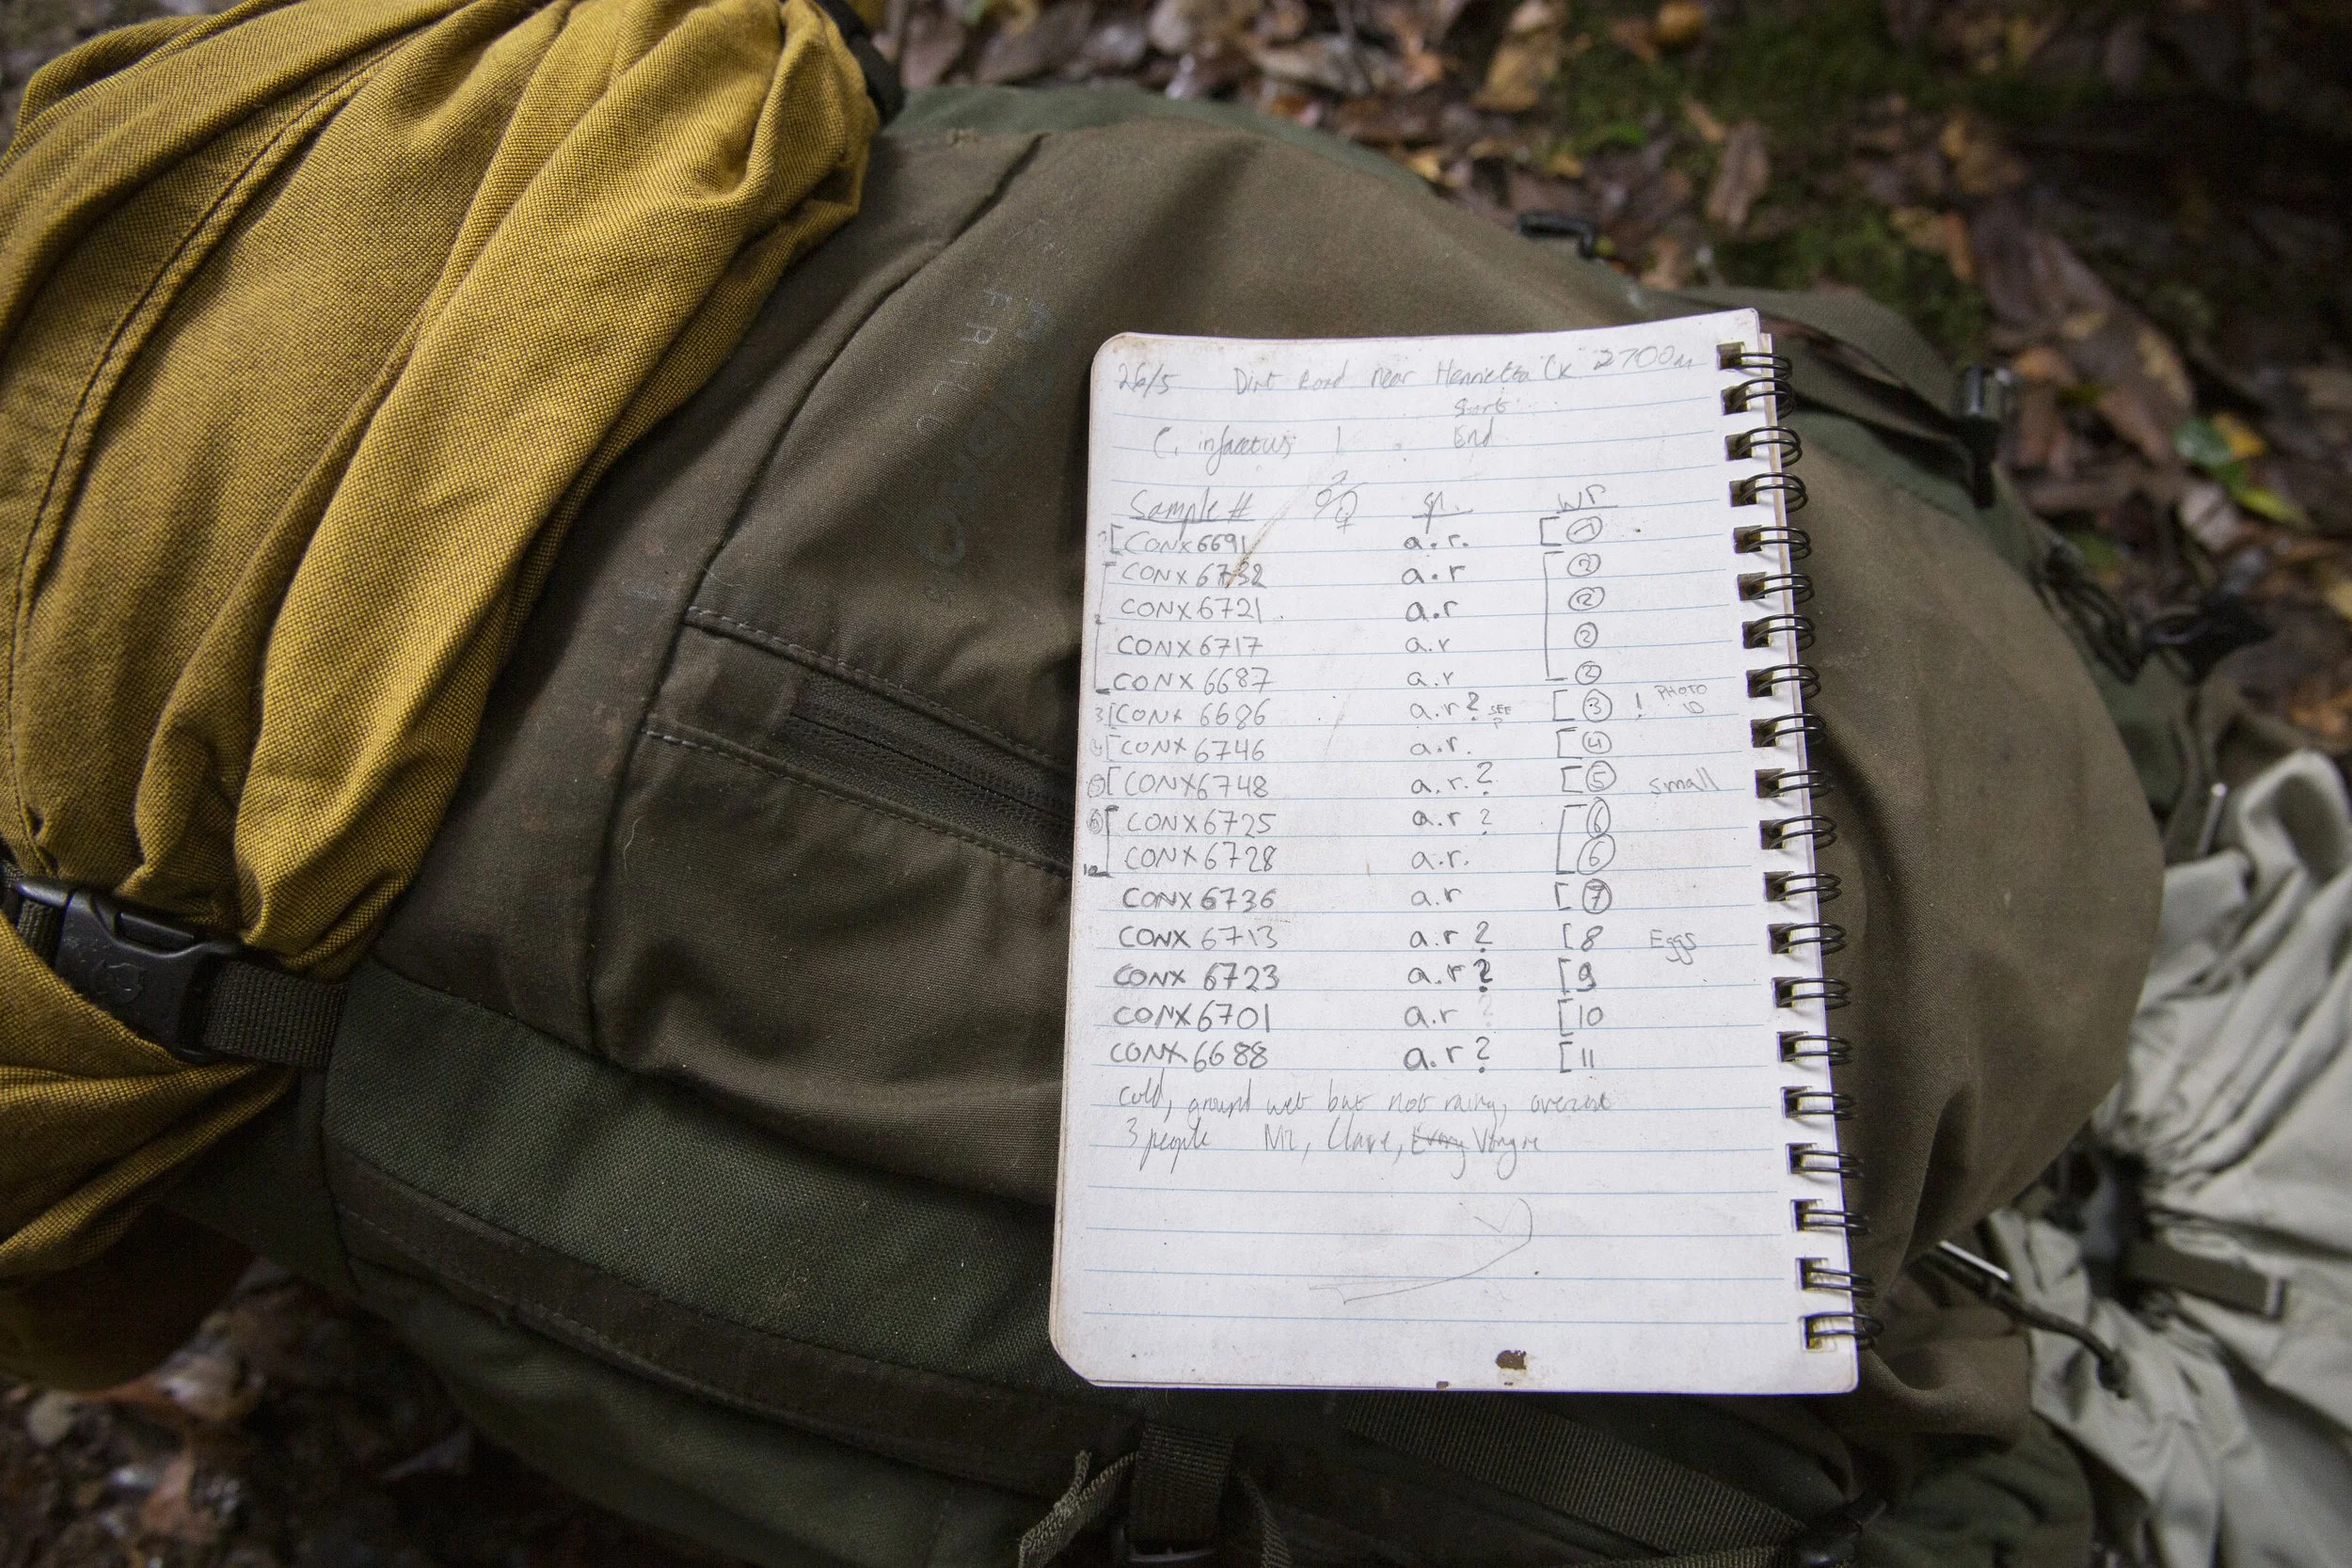 26/5 Dirt Road near Henrietta Ck 2700m
Start
C. infacetus 1 End
Sample # ♂/♀ sp. wr
[CONX6691 a.r. [1
CONX 6732 a.r 2
CONX 6721 a.r 2
CONX 6717 a.r 2
CONX 6687 a.r 2
3[CONX 6686 a.r? SEE P [3 ! PHOTO ID
4[CONX 6746 a.r. [4
5[CONX6748 a.r.? [5 small
6[CONX6725 a.r? [6
CONX6728 a.r. 6
CONX6736 a.r [7
CONX 6713 a.r? [8 Eggs
CONX 6723 a.r? [9
CONX6701 a.r [10
CONX6688 a.r? [11
cold, ground wet but not rainy,
3 people Clare,